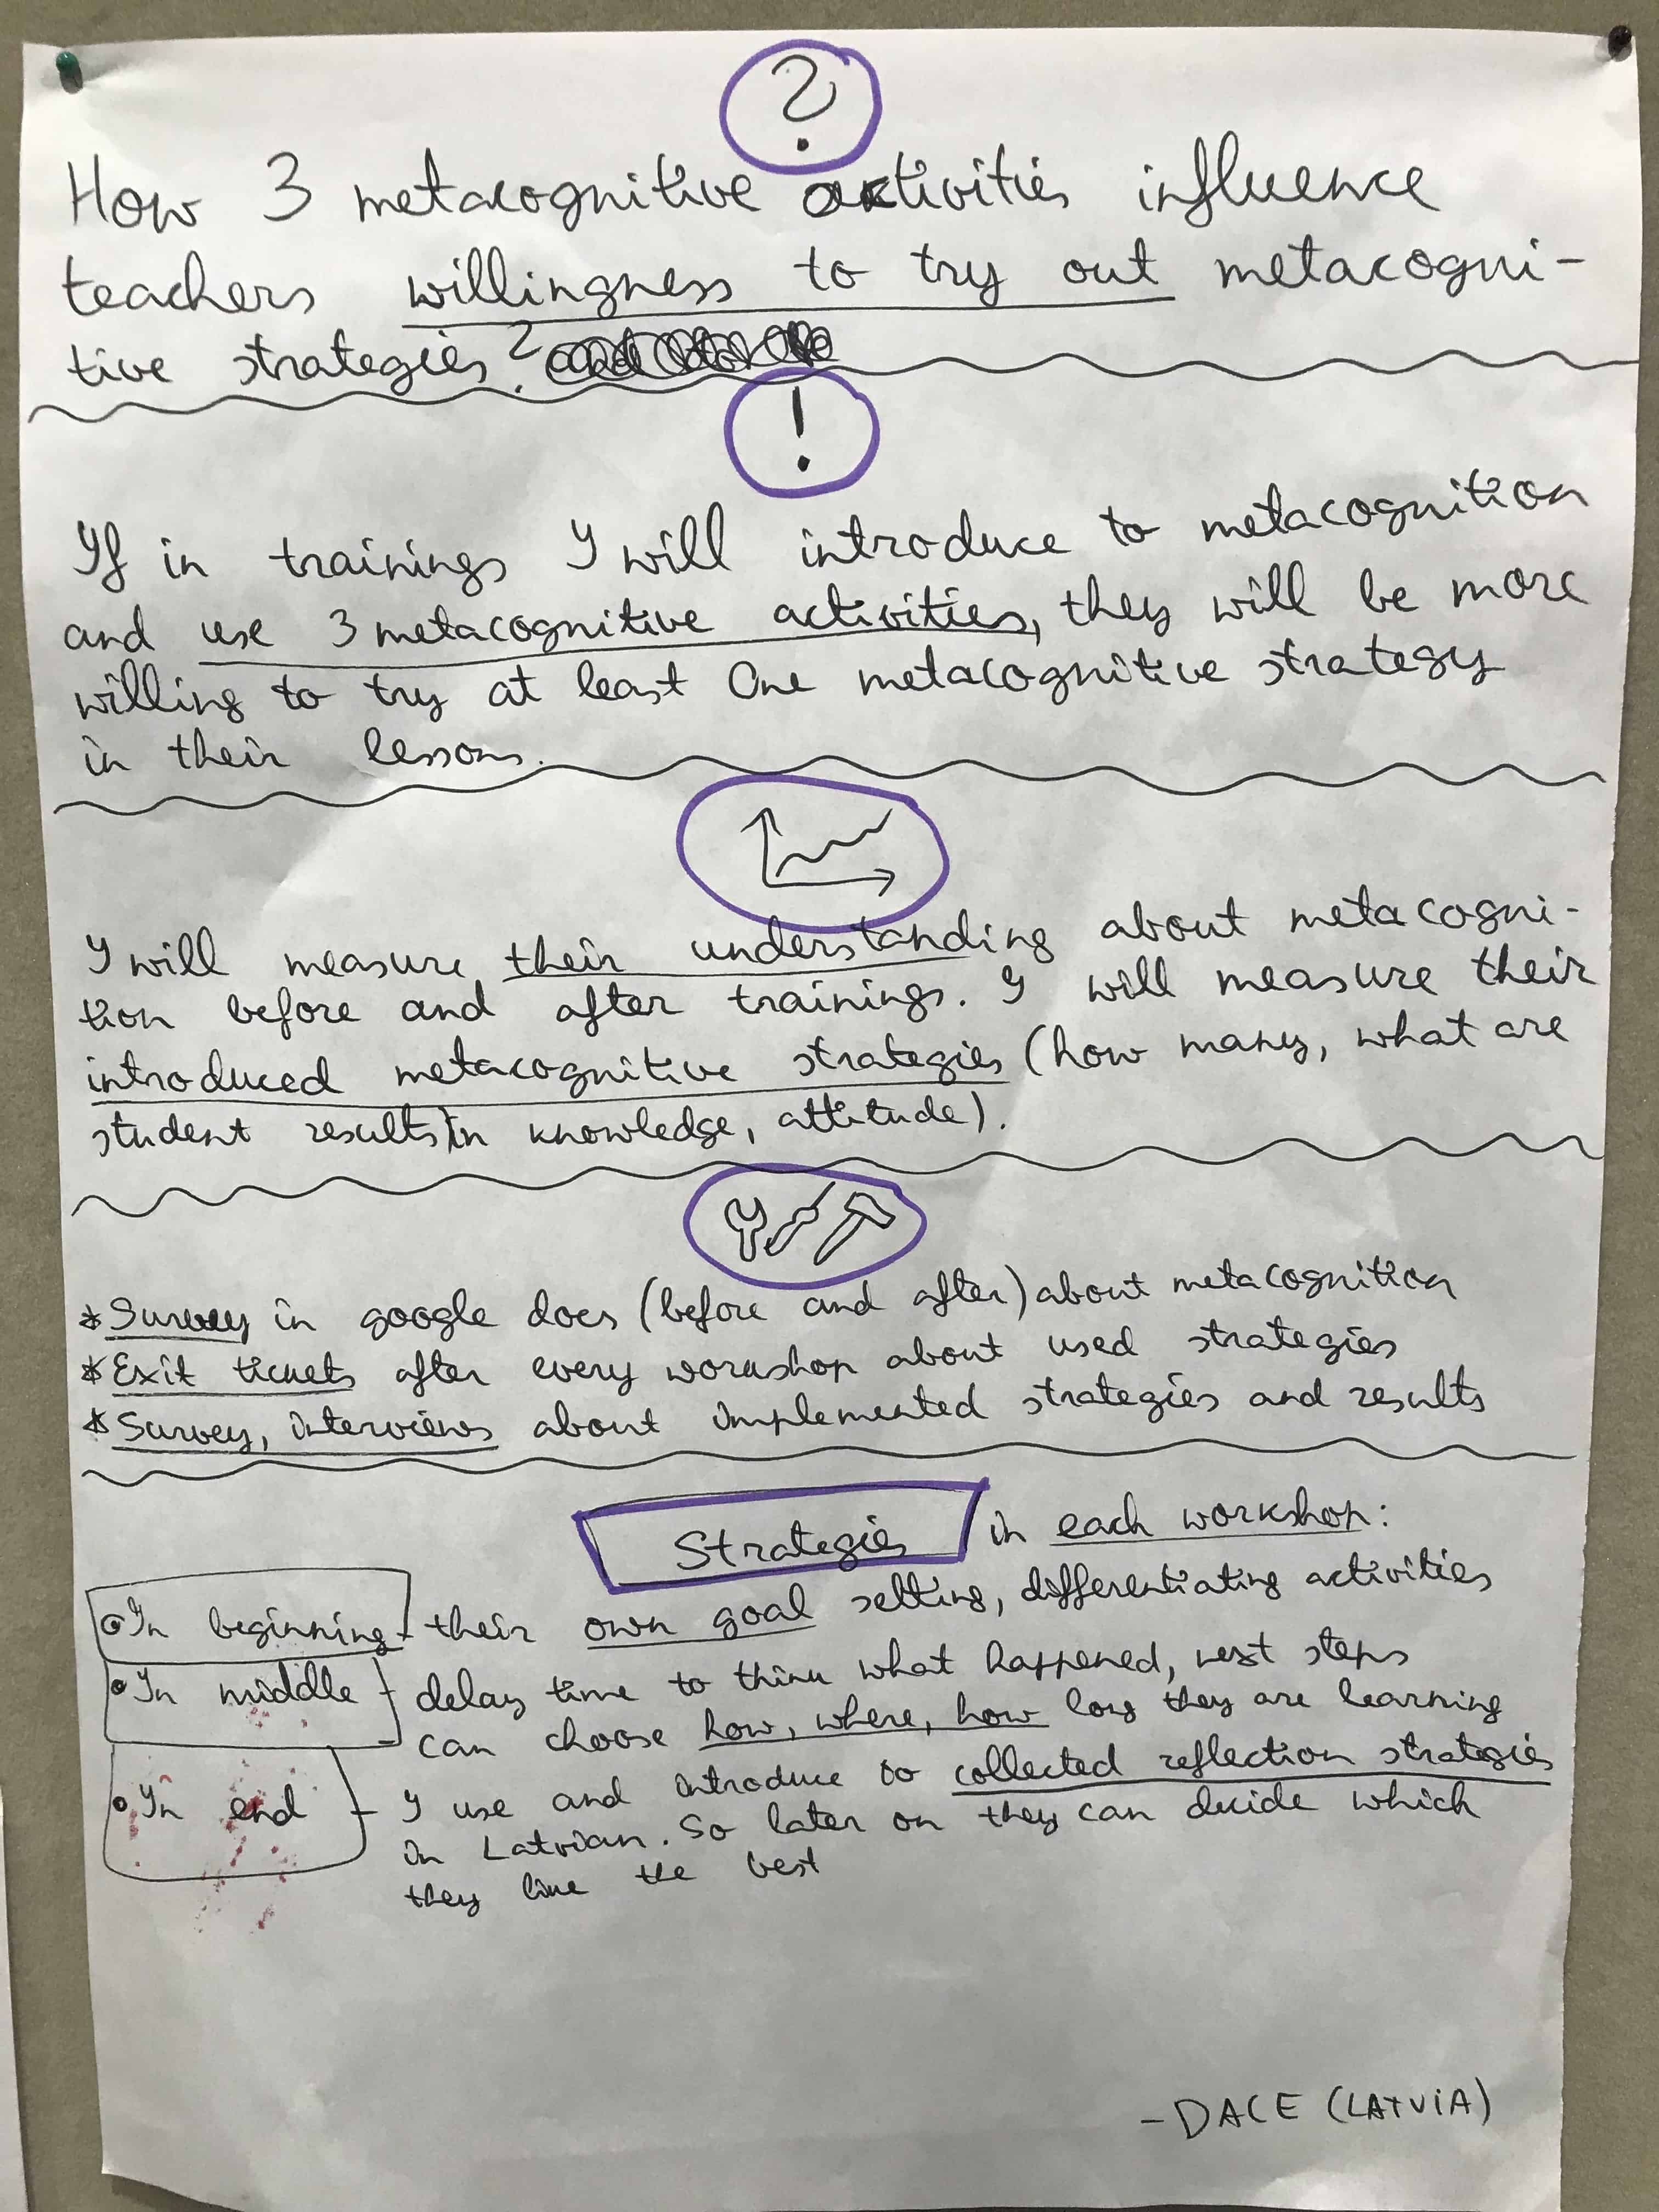 ?
How 3 metacognitive activities influence
teachers willingness to try out metacogni-
tive strategies?
!
If in trainings I will introduce to metacognition
and use 3 metacognitive activities, they will be more
willing to try at least One metacognitive strategy
in their lessons.
I will measure their understanding about metacogni-
tion before and after trainings. I will measure their
introduced metacognitive strategies (how many, what are
student results in knowledge, attitude).
*Survey in google docs (before and after) about metacognition
*Exit tickets after every workshop about used strategies
*Survey, interviews about implemented strategies and results
Strategies in each workshop:
• In beginning - their own goal setting, differentiating activities
• In middle - delay time to think what happened, next steps
- can choose how, where, how long they are learning
• In end - I use and introduce to collected reflection strategies
in Latvian. So later on they can decide which
they like the best
- DACE (LATVIA)